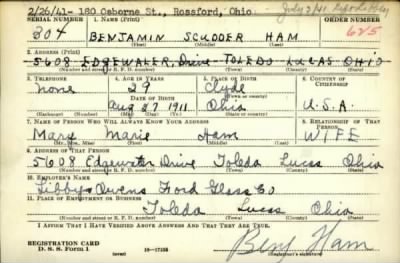 2/26/41- 180 Osborne St., Rossford, Ohio. July 3/41
SERIAL NUMBER 1. NAME (Print) ORDER NUMBER
304 BENJAMIN SCUDDER HAM 625
(First) (Middle) (Last)
2. ADDRESS (Print)
5608 EDGEWATER Drive TOLEDO LUCAS OHIO
(Number and street or R. F. D. number) (Town) (County) (State)
3. TELEPHONE 4. AGE IN YEARS 5. PLACE OF BIRTH 6. COUNTRY OF CITIZENSHIP
none 29 Clyde
DATE OF BIRTH (Town or county)
Aug 27 1911 Ohio U.S.A.
(Mo.) (Day) (Yr.) (State or country)
7. NAME OF PERSON WHO WILL ALWAYS KNOW YOUR ADDRESS 8. RELATIONSHIP OF THAT PERSON
Mary Marie Ham WIFE
(Mr., Mrs., Miss) (First) (Middle) (Last)
9. ADDRESS OF THAT PERSON
5608 Edgewater Drive Toledo Lucas Ohio
(Number and street or R. F. D. number) (Town) (County) (State)
10. EMPLOYER'S NAME
Libby Owens Ford Glass Co
11. PLACE OF EMPLOYMENT OR BUSINESS
Toledo Lucas Ohio
(Number and street or R. F. D. number) (Town) (County) (State)
I AFFIRM THAT I HAVE VERIFIED ABOVE ANSWERS AND THAT THEY ARE TRUE.
REGISTRATION CARD
D. S. S. Form 1 (over) 16-17105 Benj Ham